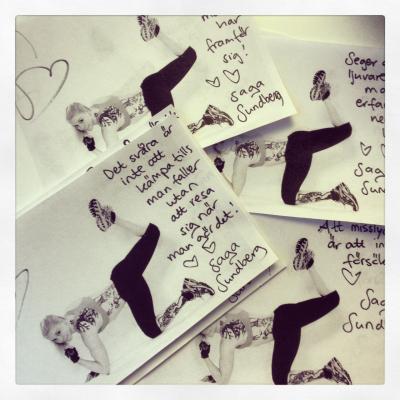 har
framför
sig!
Saga
Sundberg
Seger
ljuvare
Saga
Sundb
Det svåra är
inte att
kämpa tills
man faller
utan
att resa
sig när
man gör det!
Saga
Sundberg
Att missly
är att in
försök
Saga
Sundb